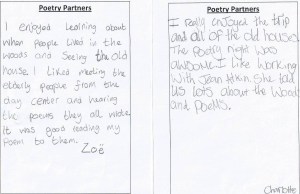 Poetry Partners
I enjoyed learning about
when people lived in the
woods and seeing the old
house. I liked meeting the
elderly people from the
day center and hearing
the poems they all wrote
it was good reading my
poem to them.
Zoë
Poetry Partners
I really enjoyed the trip
and all of the old house.
The poetry night was
awsome. I like working
with Jean Atkin she told
us lots about the woods
and poems.
Charlotte